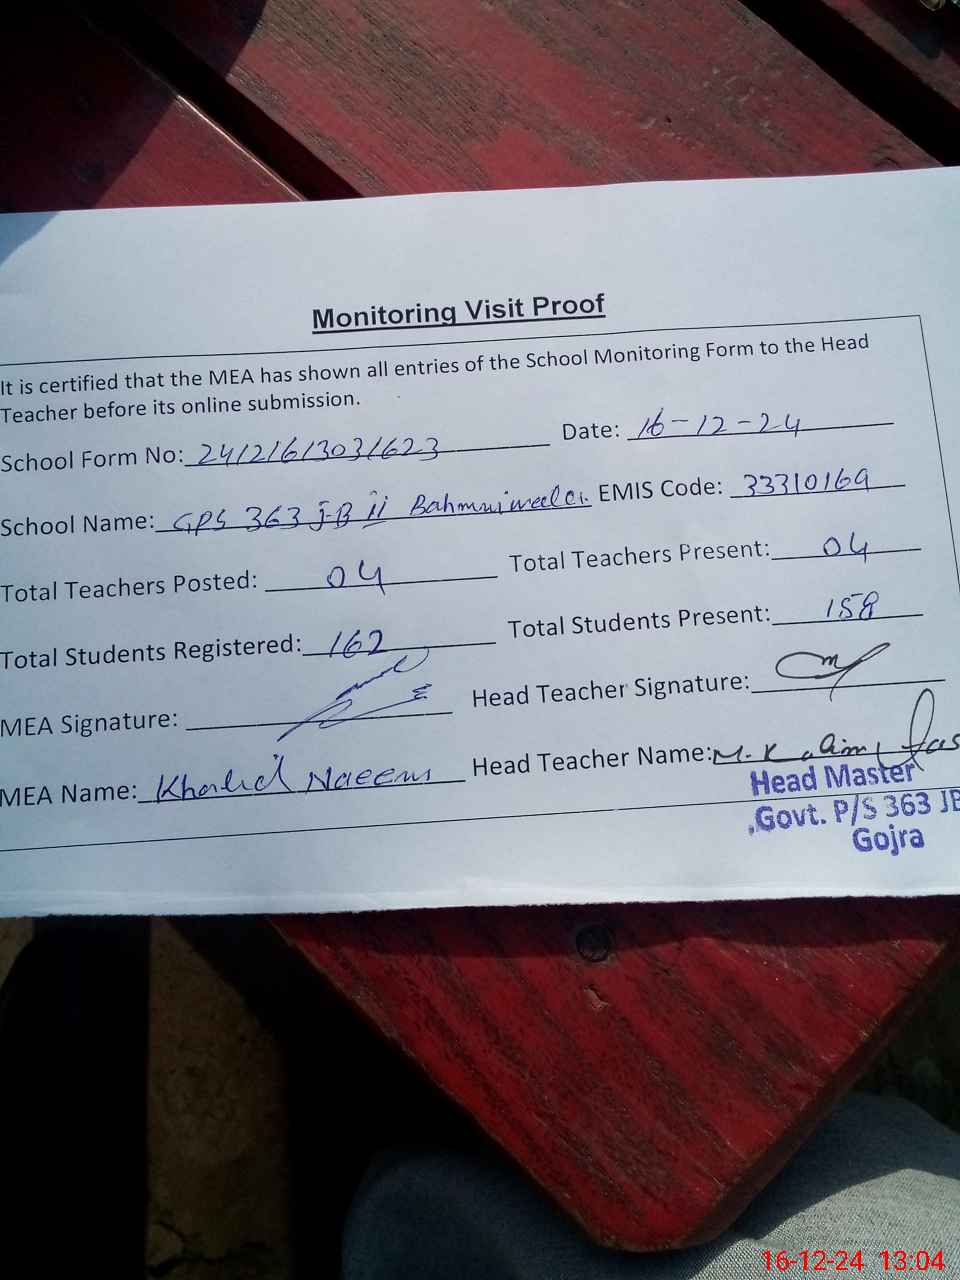 Monitoring Visit Proof
It is certified that the MEA has shown all entries of the School Monitoring Form to the Head
Teacher before its online submission.
School Form No: 24121613031623 Date: 16-12-24
School Name: GPS 363 J-B ii EMIS Code: 33310169
Total Teachers Posted: 04 Total Teachers Present: 04
Total Students Registered: 162 Total Students Present: 158
MEA Signature: Head Teacher Signature:
MEA Name: Khalid Naeem Head Teacher Name: M. Kalim
Head Master
Govt. P/S 363 JB
Gojra
16-12-24 13:04